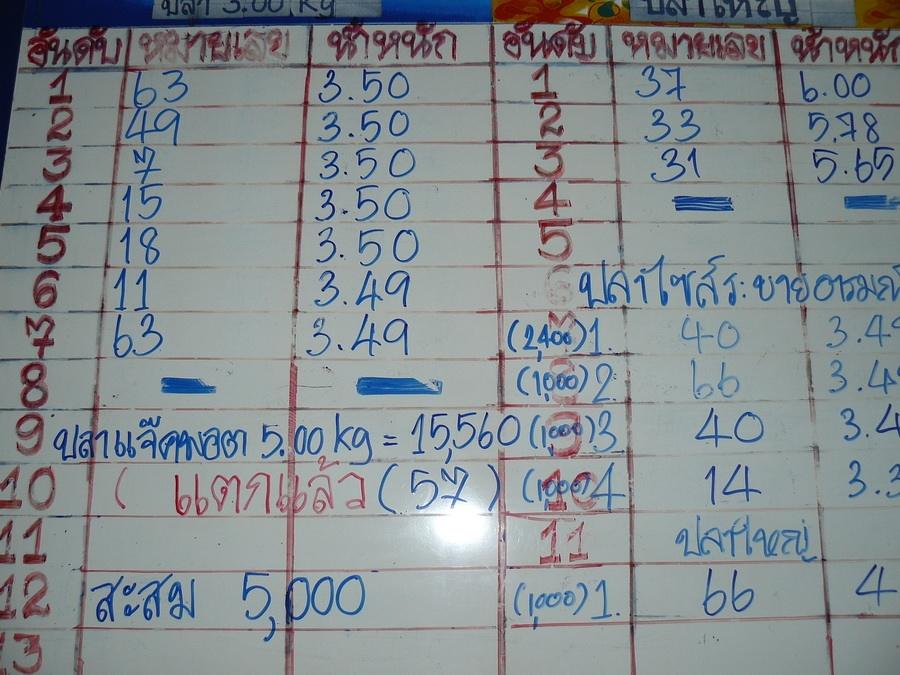 ปลา 3.00 kg ปลาใหญ่
อันดับ หมายเลข น้ำหนัก อันดับ หมายเลข น้ำหนัก
1 63 3.50 1 37 6.00
2 49 3.50 2 33 5.78
3 7 3.50 3 31 5.65
4 15 3.50 4
5 18 3.50 5
6 11 3.49 6 ปลาไซส์ระบายอารมณ์
7 63 3.49 (2,400) 1. 40 3.49
8 (1,000) 2 66 3.4
9 ปลาแจ๊คพอต 5.00 kg = 15,560 (1,000) 3 40 3.4
10 ( แตกแล้ว (57) (1,000) 4 14 3.3
11 11 ปลาใหญ่
12 สะสม 5,000 (1,000) 1. 66 4
13